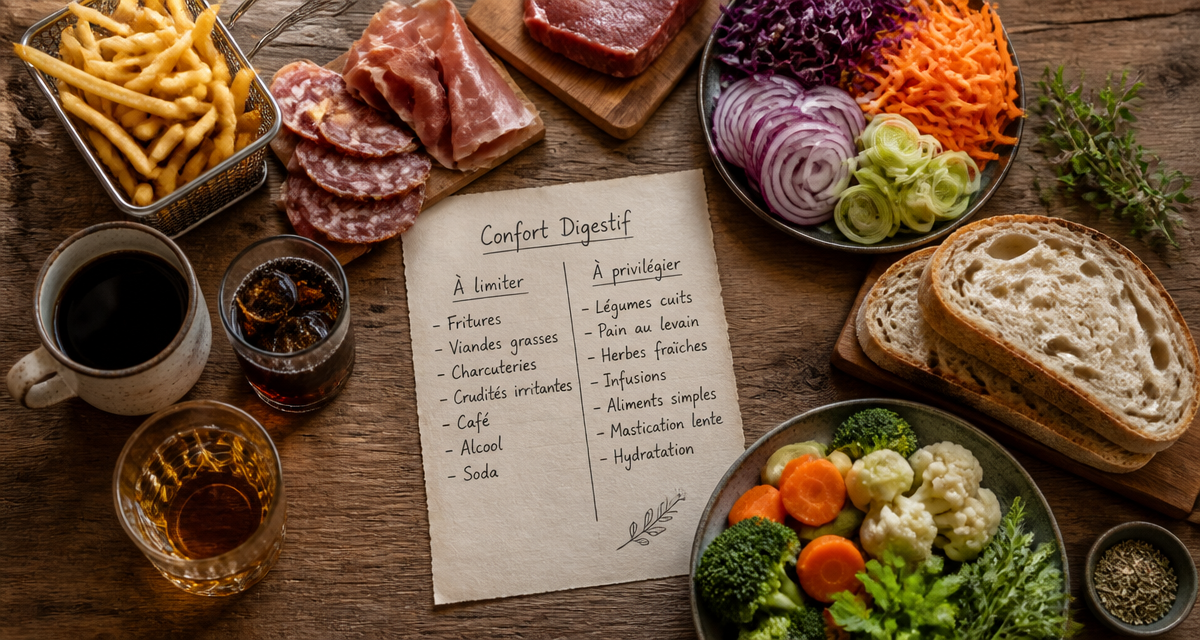 Confort Digestif
À limiter
- Fritures
- Viandes grasses
- Charcuteries
- Crudités irritantes
- Café
- Alcool
- Soda
À privilégier
- Légumes cuits
- Pain au levain
- Herbes fraîches
- Infusions
- Aliments simples
- Mastication lente
- Hydratation